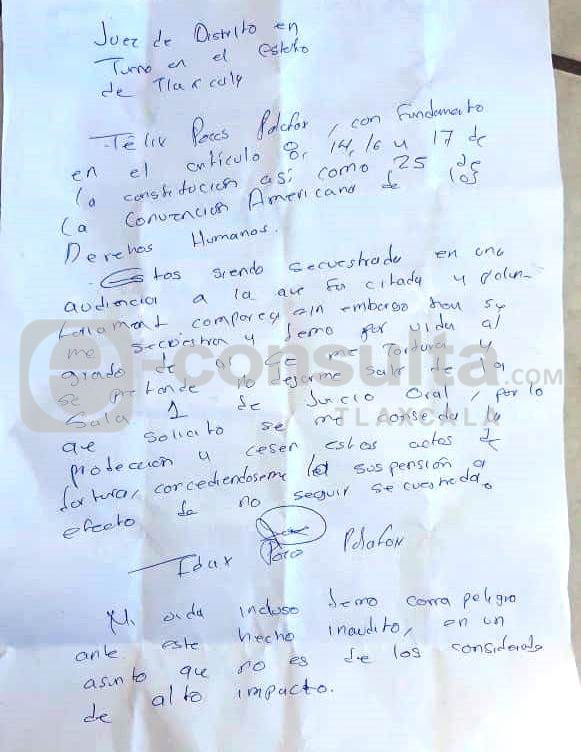 Juez de Distrito en
Turno en el estado
de Tlaxcala
Felix Pozos Palafox, con fundamento
en el artículo 8, 14, 16 y 17 de
la constitución así como 25 de
la Convención Americana de los
Derechos Humanos.
Estos siendo secuestrado en una
audiencia a la que fui citada y volun-
tariamente comparecí sin embargo hoy se
me secuestra y temo por vida al
grado de que se me tortura y
se pretende no dejarme salir de la
Sala 1 de Juicio Oral, por lo
que solicito se me conseda la
protección y cesen estos actos de
tortura, concediendoseme la suspensión a
efecto de no seguir secuestrada.
Palafox
Mi vida incluso temo corra peligro
ante este hecho inaudito, en un
asunto que no es de los considerado
de alto impacto.
e-consulta.COM
TLAXCALA